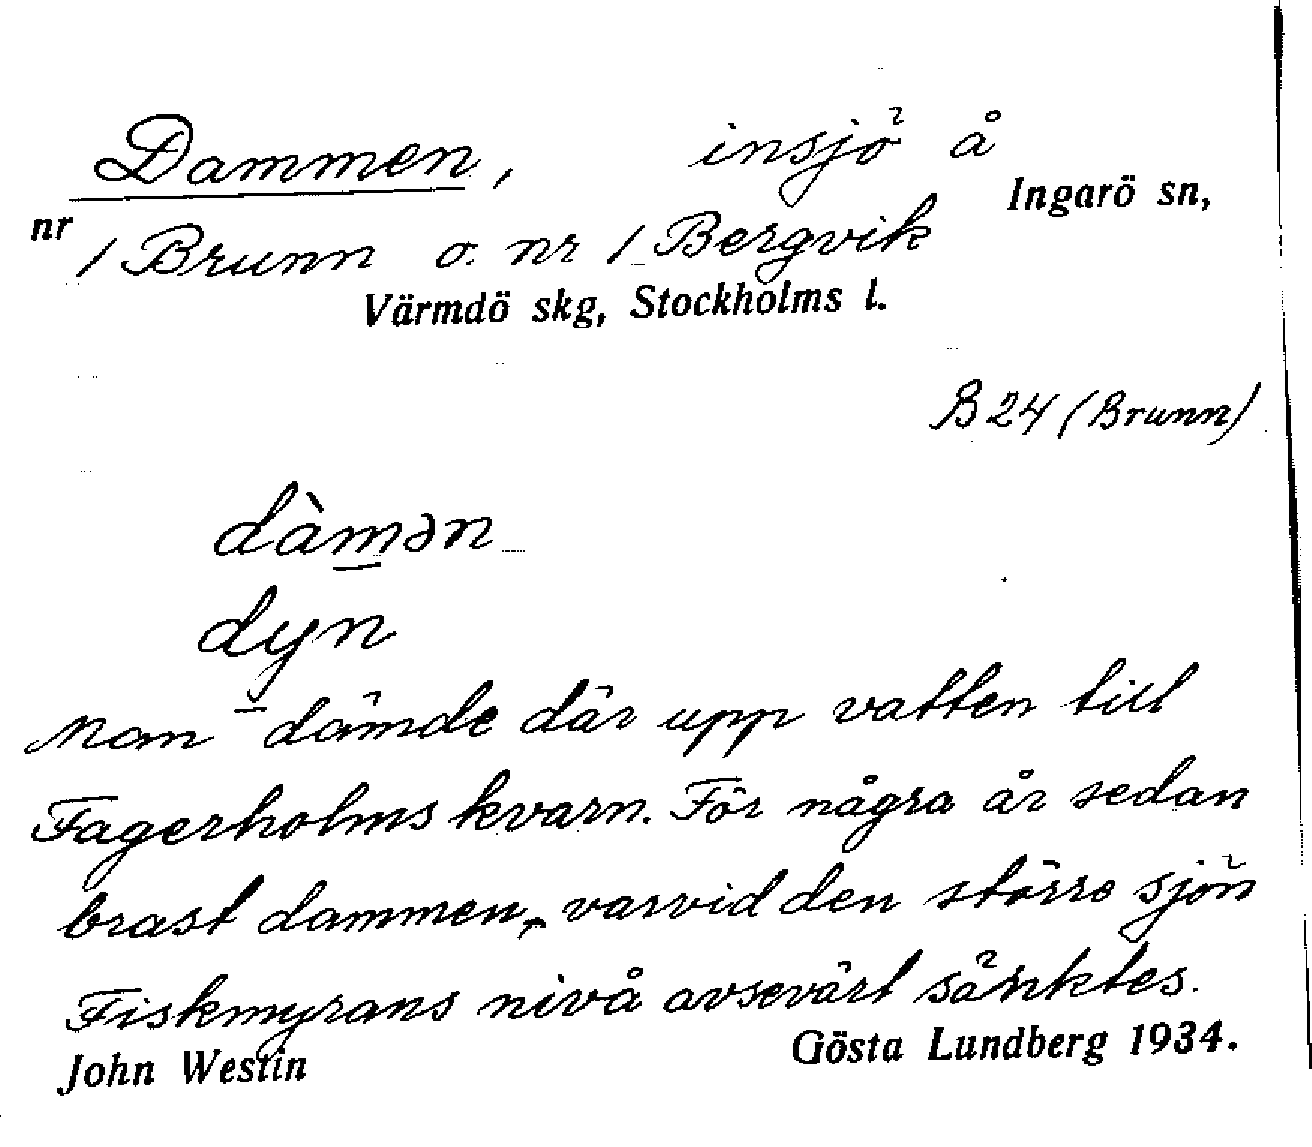 Dammen, insjö å Ingarö sn,
nr 1 Brunn o. nr 1 Bergvik
Värmdö skg, Stockholms l.
B 24 (Brunn)
dàmən
dyn
Man dämde där upp vatten till
Fagerholms kvarn. För några år sedan
brast dammen, varvid den större sjön
Fiskmyrans nivå avsevärt sänktes.
John Westin Gösta Lundberg 1934.